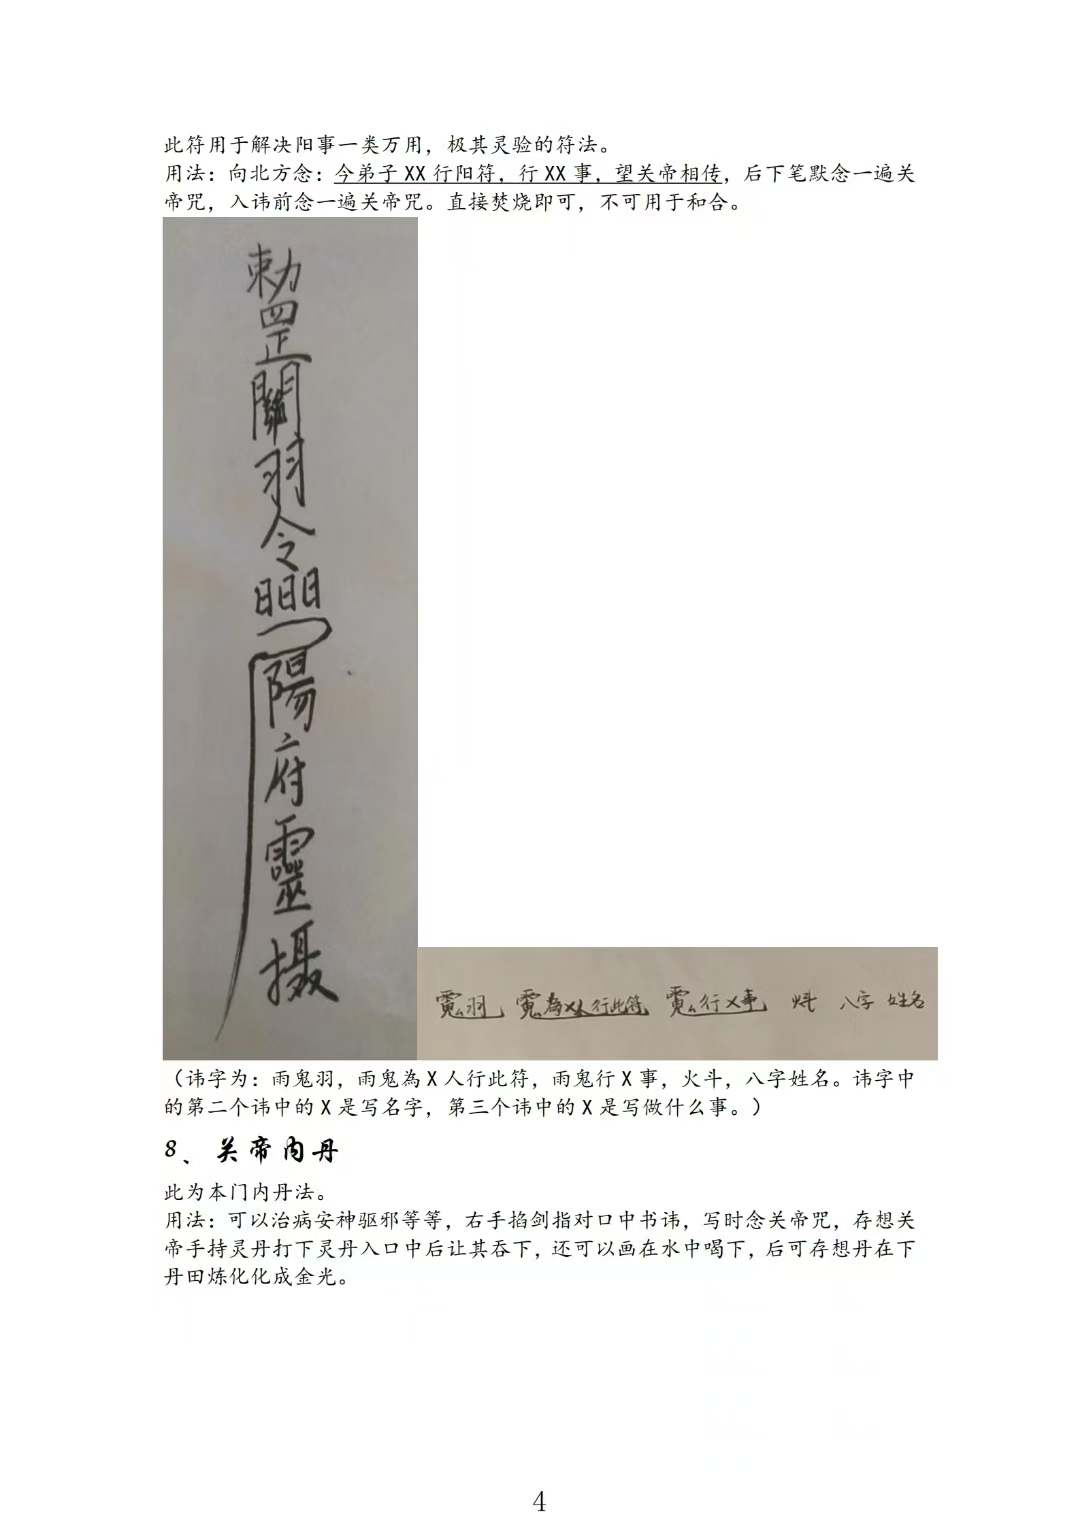 此符用于解决阳事一类万用，极其灵验的符法。
用法：向北方念：今弟子 XX 行阳符，行 XX 事，望关帝相传，后下笔默念一遍关
帝咒，入讳前念一遍关帝咒。直接焚烧即可，不可用于和合。
勅罡關羽令
陽府靈摄
為X人行此符
行X事
八字 姓名
（讳字为：雨鬼羽，雨鬼為 X 人行此符，雨鬼行 X 事，火斗，八字姓名。讳字中
的第二个讳中的 X 是写名字，第三个讳中的 X 是写做什么事。）
8、关帝内丹
此为本门内丹法。
用法：可以治病安神驱邪等等，右手掐剑指对口中书讳，写时念关帝咒，存想关
帝手持灵丹打下灵丹入口中后让其吞下，还可以画在水中喝下，后可存想丹在下
丹田炼化化成金光。
4